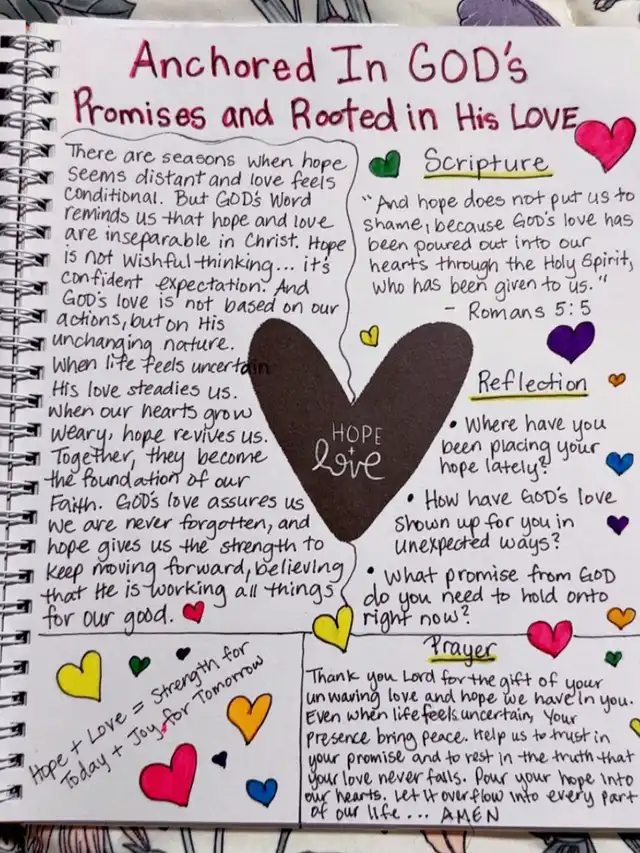 Anchored In GOD's
Promises and Rooted in His LOVE
There are seasons when hope
seems distant and love feels
conditional. But GOD's Word
reminds us that hope and love
are inseparable in Christ. Hope
is not wishful thinking... it's
confident expectation. And
GOD's love is not based on our
actions, but on His
unchanging nature.
When life feels uncertain
His love steadies us.
When our hearts grow
weary, hope revives us.
Together, they become
the foundation of our
Faith. GOD's love assures us
we are never forgotten, and
hope gives us the strength to
keep moving forward, believing
that He is working all things
for our good.
HOPE
+
love
Scripture
"And hope does not put us to
shame, because GOD's love has
been poured out into our
hearts through the Holy Spirit,
who has been given to us."
- Romans 5:5
Reflection
• Where have you
been placing your
hope lately?
• How have GOD's love
shown up for you in
unexpected ways?
• What promise from GOD
do you need to hold onto
right now?
Hope + Love = Strength for
Today + Joy for Tomorrow
Prayer
Thank you Lord for the gift of your
unwaving love and hope we have in you.
Even when life feels uncertain, Your
presence bring peace. Help us to trust in
your promise and to rest in the truth that
your love never fails. Pour your hope into
our hearts. Let it overflow into every part
of our life... AMEN